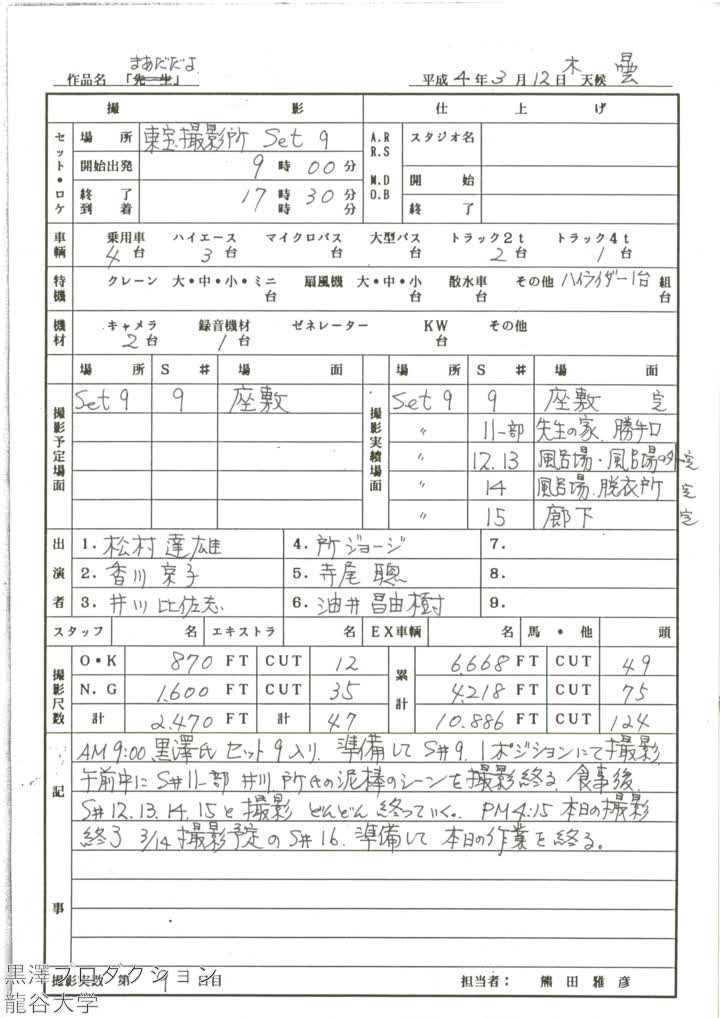 まあだだよ
作品名 「先生」 平成 4 年 3 月 12 日 木 天候 曇
撮 影 仕 上 げ
セット・ロケ 場 所 東宝撮影所 Set 9 A.R R.S M.D O.B スタジオ名
開始出発 9 時 00 分 開 始
終 了 到 着 17 時 30 分 時 分 終 了
車輌 乗用車 ハイエース マイクロバス 大型バス トラック2t トラック4t
4台 3台 台 台 2台 1台
特機 クレーン 大・中・小・ミニ 扇風機 大・中・小 散水車 その他 ハイライダー1台 組
台 台 台 台
機材 キャメラ 録音機材 ゼネレーター KW その他
2台 1台 台
場 所 S # 場 面 場 所 S # 場 面
撮影予定場面 Set 9 9 座敷 撮影実績場面 Set 9 9 座敷 定
〃 11一部 先生の家.勝手口
〃 12.13 風呂場・風呂場の外 定
〃 14 風呂場.脱衣所 定
〃 15 廊下 定
出演者 1. 松村達雄 4. 所ジョージ 7.
2. 香川京子 5. 寺尾聰 8.
3. 井川比佐志 6. 油井昌由樹 9.
スタッフ 名 エキストラ 名 EX車輌 名 馬・他 頭
撮影尺数 O・K 870 FT CUT 12 累計 6.668 FT CUT 49
N.G 1.600 FT CUT 35 4.218 FT CUT 75
計 2.470 FT 計 47 10.886 FT CUT 124
記事 AM 9:00 黒澤氏 セット9入り. 準備して S#9. 1ポジションにて撮影.
午前中に S#11一部 井川 所氏の泥棒のシーンを撮影終る. 食事後.
S#12.13.14.15と撮影 どんどん終っていく。 PM 4:15 本日の撮影
終了 3/14 撮影予定の S#16. 準備して 本日の作業を終る。
撮影実数 第 9 日目 担当者: 熊田雅彦
黒澤プロダクション
龍谷大学